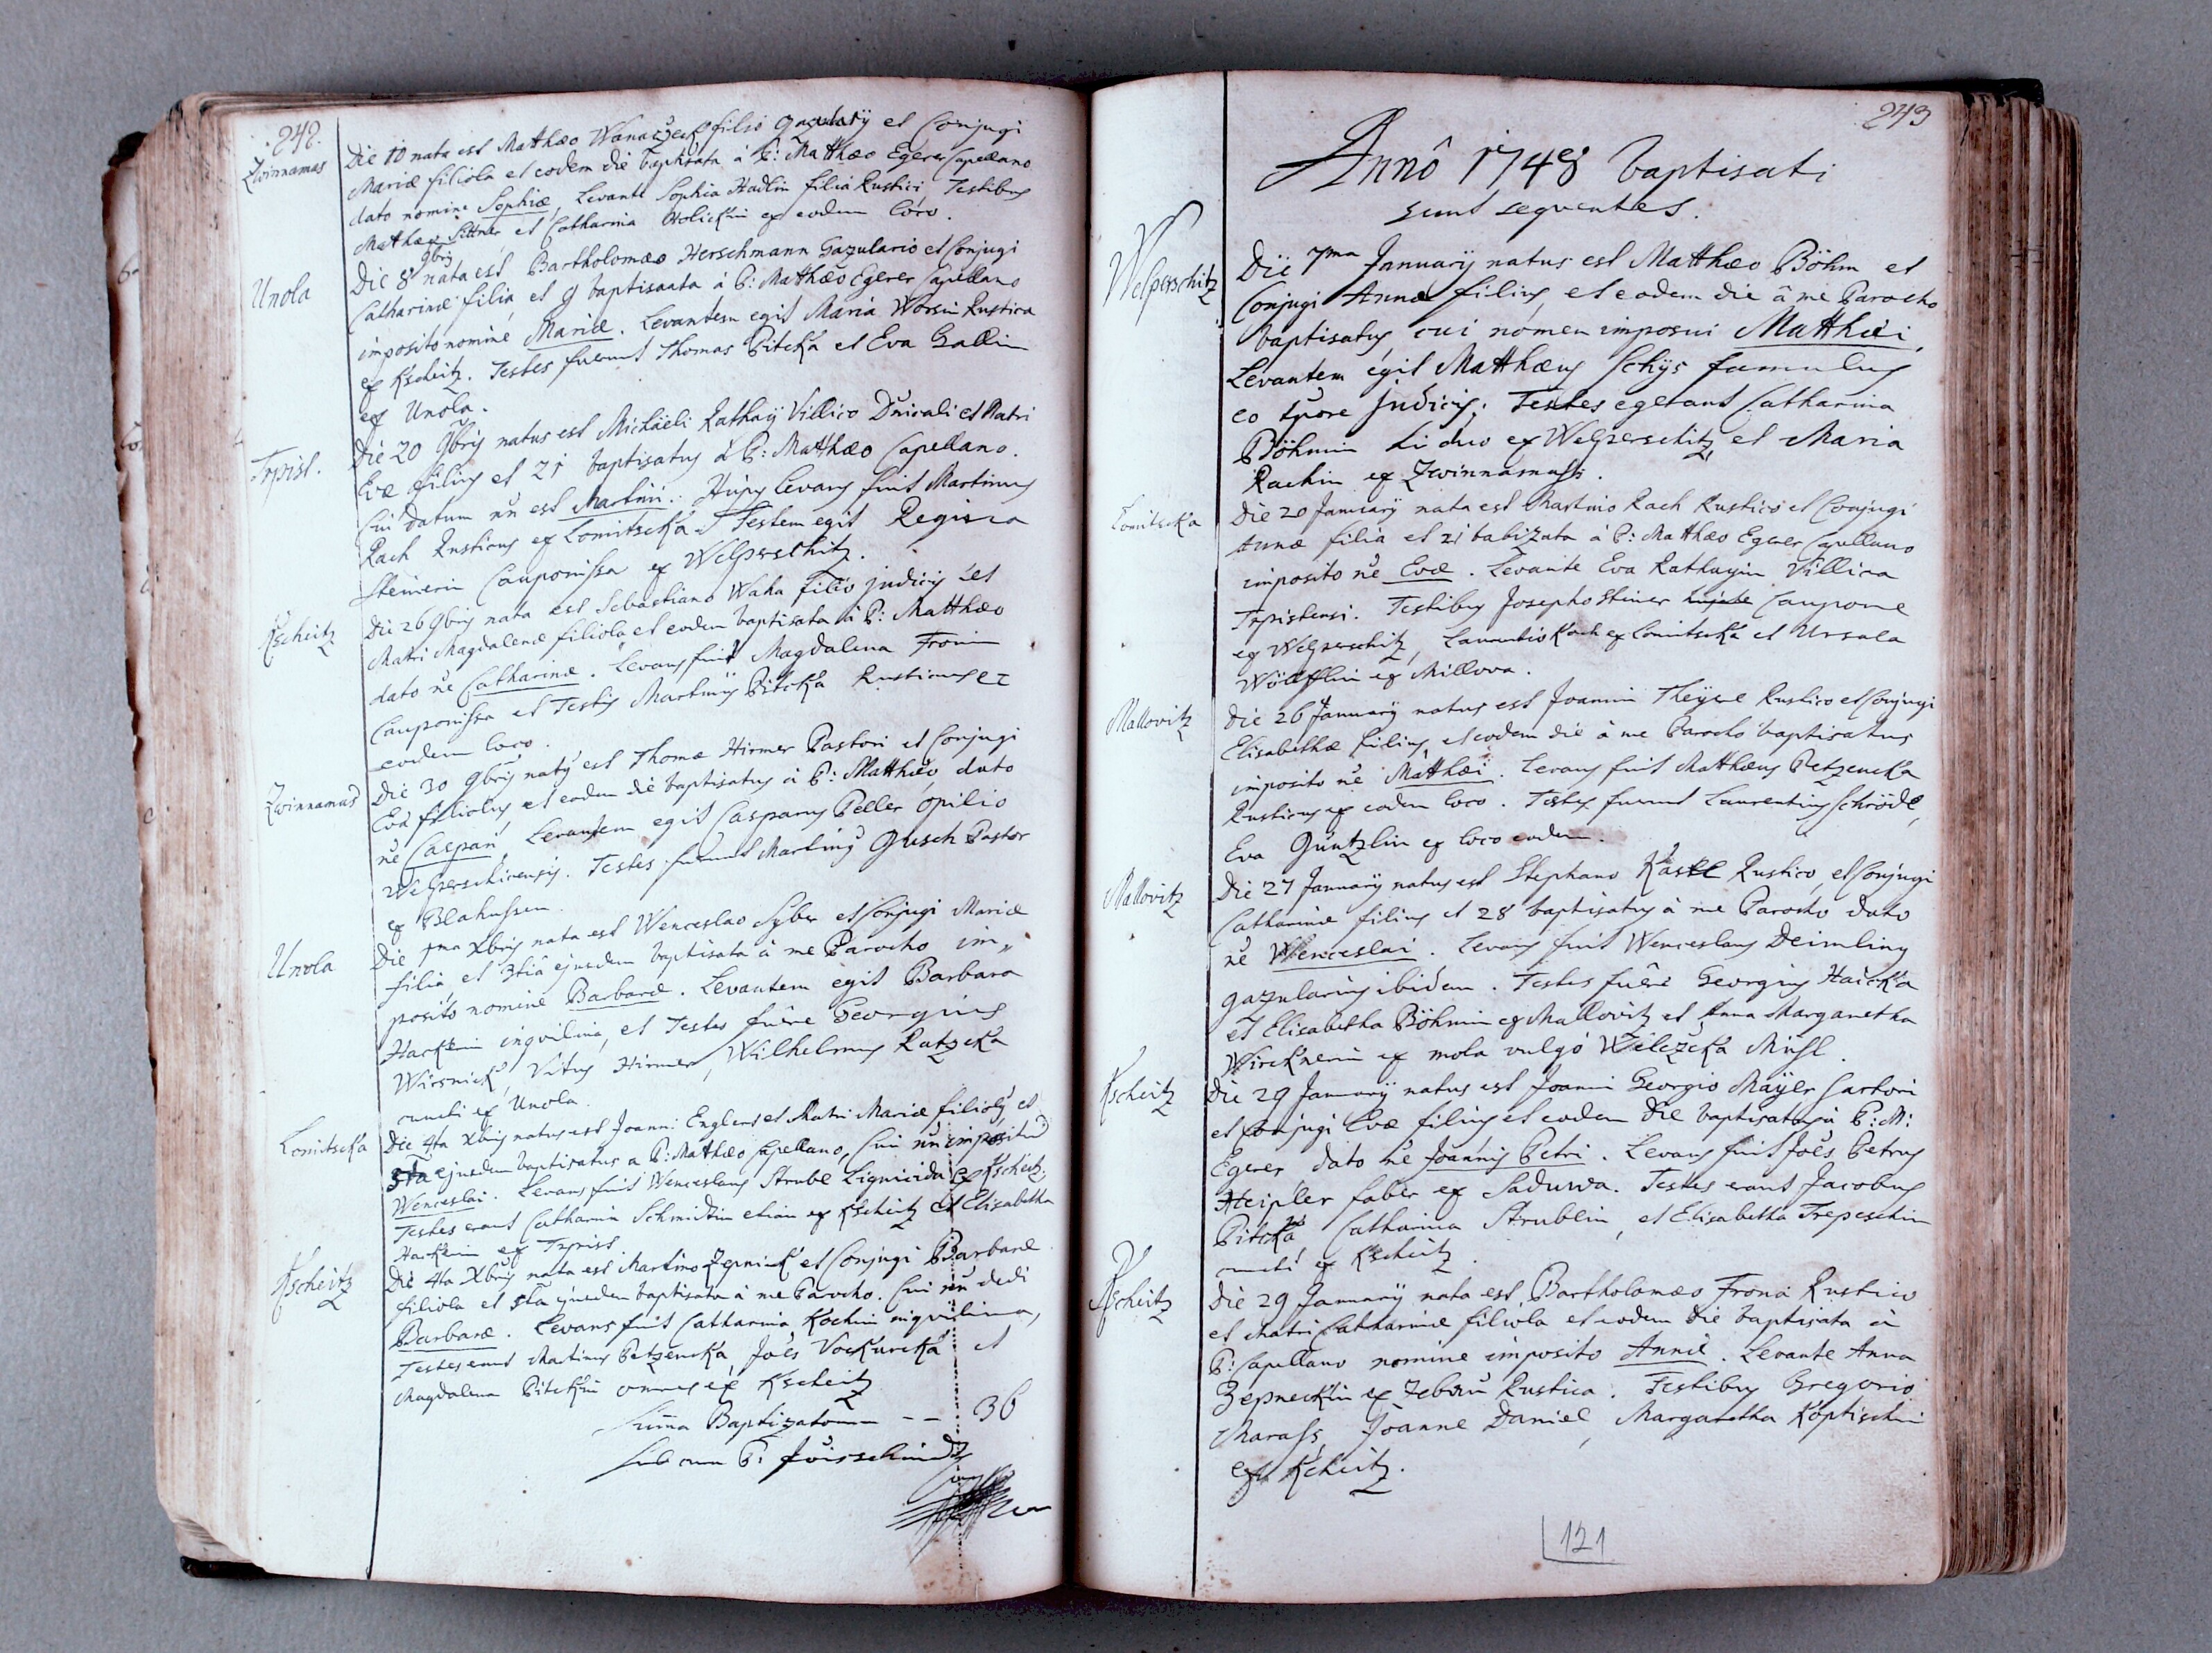 242.
Zwinnamas
Die 10 nata est Matthæo Wanaczek filio Gazularÿ et Conjugi
Mariæ filiola et eodem die baptisata à P: Matthæo Egerer Capellano
dato nomine Sophiæ, Levante Sophia Hadlin filia Rustici Testibus
Matthæo Sittner et Catharina Holickin ex eodem loco.
Unola
Die 8 9bris nata est Bartholomæo Herschmann Gazulario et Conjugi
Catharinæ filia, et 9 baptisaata à P: Matthæo Egerer Capellano
imposito nomine Mariæ. Levantem egit Maria Worsin Rustica
ex Kscheitz. Testes fuerunt Thomas Pitcka et Eva Gallin
ex Unola.
Trpist.
Die 20 9bris natus est Michäeli Rathaÿ Villico Dnicali et Matri
Evæ filius et 21 baptisatus à P: Matthæo Capellano.
Cui datum nn est Martini. Hujus levans fuit Martinus
Rach Rusticus ex Lomitscka Testem egit Regina
Steinerin Cauponissa ex Welperschitz.
Kscheitz
Die 26 9bris nata est Sebastiano Waha filio judicis et
Matri Magdalenæ filiola et eodem baptisata à P: Matthæo
dato ne Catharinæ. Levans fuit Magdalena Fronin
Cauponissa et Testis Martinus Pitcka Rusticus ex
eodem loco.
Zwinnamas
Die 30 9bris natus est Thomæ Hirmer Pastori et Conjugi
Eva filiolus, et eodem die baptisatus à P: Matthæo, dato
ne Caspari, Levantem egit Casparus Peller opilio
Welperschicensis. Testes fuerunt Martinus Gusch Pastor
ex Blahussen.
Unola
Die 1ma Xbris nata est Wenceslao Syber et Conjugi Mariæ
filia, et 3tiâ ejusdem baptisata à me Parocho im„
posito nomine Barbaræ. Levantem egit Barbara
Hacklin inqvilina, et Testes fuêre Georgius
Wirsnick, Vitus Hirmer, Wilhelmus Ratzcka
cuncti ex Unola.
Lomitscka
Die 4ta Xbris natus est Joanni Englert et Matri Mariæ filiolus, et
5ta ejusdem baptisatus a P: Matthæo Capellano, Cui nn impositum
Wenceslai. Levans fuit Wenceslaus Strubl Lignicida ex Kscheitz.
Testes erant Catharina Schmidtin etiam ex Kscheitz et Elisabetha
Hacklin ex Trpist.
Kscheitz
Die 4ta Xbris nata est Martino Zepnick et Conjugi Barbaræ
filiola et 5ta ejusdem baptisata à me Parocho. Cui nn dedi
Barbaræ. Levans fuit Catharina Kochin inqvilina,
Testes erant Martinus Petzencka, Joës Vockurcka et
Magdalena Pitckin omnes ex Kscheitz
Suma Baptizatorum -- 36
Sub cura P:
243
Annô 1748 baptisati
sunt sequentes.
Welperschitz
Die 7ma Januarÿ natus est Matthæo Böhm et
Conjugi Annæ filius, et eodem die â me Parocho
baptisatus, cui nomen imposui Matthæi.
Levantem egit Matthæus Schÿs famulus
eo tpore judicis; Testes egerant Catharina
Böhmin hi duo ex Welperschitz, et Maria
Rachin ex Zwinnamass.
Lomitscka
Die 20 Januarÿ nata est Martino Rach Rustico et Conjugi
Annæ filia et 21 babizata à P: Matthæo Egerer Capellano
imposito ne Evæ. Levante Eva Rathayin Villica
Trpistensi. Testibus Josepho Steiner Caupone
ex Welperschitz, Laurentio Koch ex Lomitscka et Ursula
Wölfflin ex Millowa.
Mallovitz
Die 26 Januarÿ natus est Joanni Theÿerl Rustico et Conjugi
Elisabethæ filius, et eodem die à me Parocho baptisatus
imposito ne Matthæi. Levans fuit Matthæus Petzencka
Rusticus ex eodem loco. Testes fuerunt Laurentius Schrödl,
Eva Guntzlin ex loco eodem.
Mallovitz
Die 27 Januarÿ natus est Stephano Kastl Rustico, et Conjugi
Catharinæ filius et 28 baptisatus à me Parocho dato
ne Wenceslai. Levans fuit Wenceslaus Deimling
gazularius ibidem. Testes fuêre Georgius Haicka
et Elisabetha Böhmin ex Mallovitz et Anna Margaretha
Wircknerin ex mola vulgó Wilczcka Mühl.
Kscheitz
Die 29 Januarÿ natus est Joanni Georgio Maÿer Sartori
et Conjugi Evæ filius et eodem die baptisatus à P: M:
Egerer, dato ne Joannis Petri. Levans fuit Joës Petrus
Heipler faber ex Saduwa. Testes erant Jacobus
Pitcka, Catharina Strublin, et Elisabetha Trepeschin
cuncti ex Kscheitz.
Kscheitz
Die 29 Januarÿ nata est Bartholomæo Frona Rustico
et Matri Catharinæ filiola et eodem die baptisata à
P: Capellano nomine imposito Annæ. Levante Anna
Zepneckin ex Zebau Rustica. Testibus Gregorio
Marass, Joanne Daniel, Margaretha Koptischin
ex Kcheitz.
121